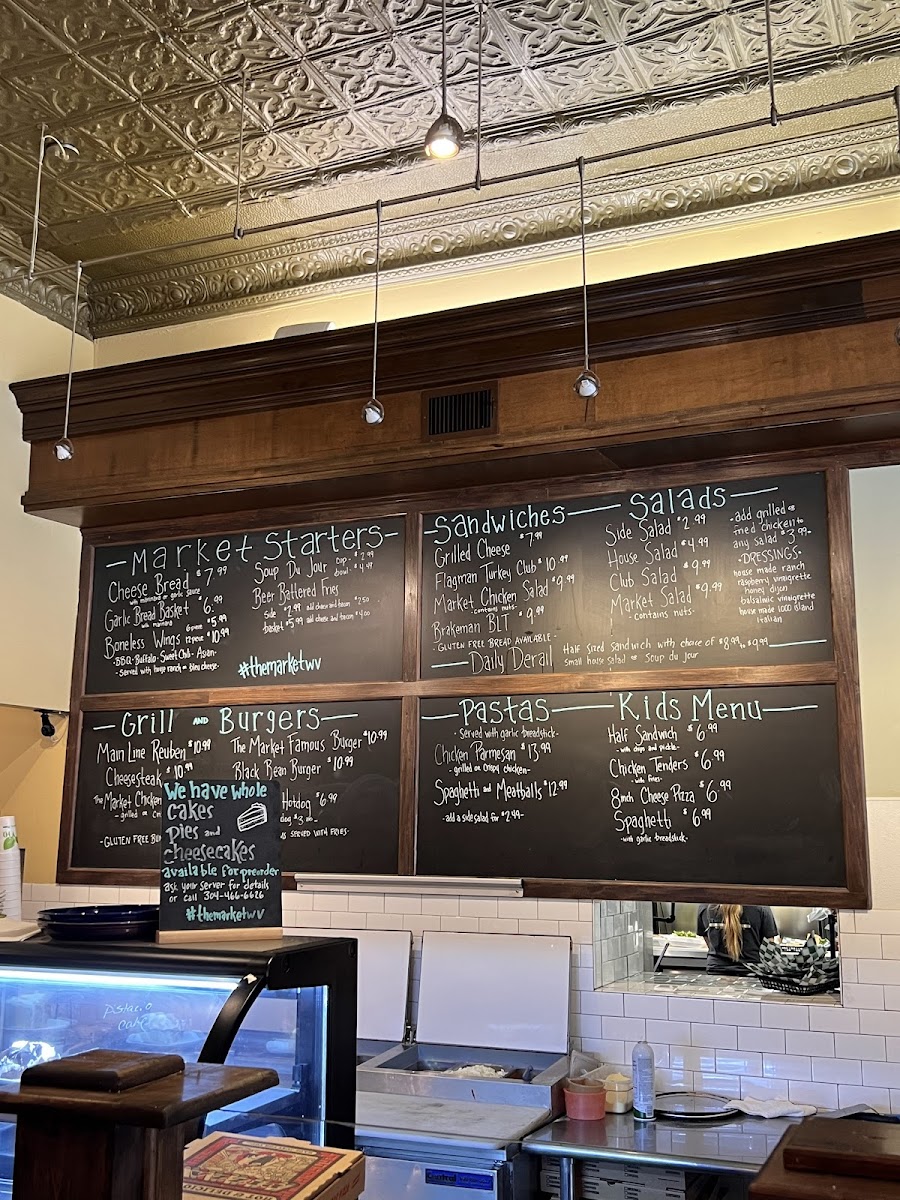 -Market Starters-
Cheese Bread $7.99
with marinara or garlic sauce
Garlic Bread Basket $6.99
with marinara
Boneless Wings 6 piece $5.99
12 piece $10.99
-BBQ-Buffalo-Sweet Chili-Asian-
-Served with house ranch or bleu cheese-
Soup Du Jour cup- $3.99
bowl- $4.99
Beer Battered Fries
side $2.99 add cheese and bacon $2.50
basket $5.99 add cheese and bacon $4.00
#themarketwv
-Sandwiches-
Grilled Cheese $7.99
Flagman Turkey Club $10.99
Market Chicken Salad $9.99
-contains nuts-
Brakeman BLT $9.99
-GLUTEN FREE BREAD AVAILABLE-
Salads-
Side Salad $2.99
House Salad $4.99
Club Salad $9.99
Market Salad $9.99
-contains nuts-
-add grilled or
fried chicken to
any salad $3.99-
•DRESSINGS•
house made ranch
raspberry vinaigrette
honey dijon
balsamic vinaigrette
house made 1000 island
italian
-Daily Derail
Half Sized Sandwich with choice of $8.99 to $9.99
small house salad or Soup du jour
-Grill AND Burgers-
Main Line Reuben $10.99
Cheesesteak $10.99
The Market Chicken
-grilled or
-GLUTEN FREE
The Market Famous Burger $10.99
Black Bean Burger $10.99
Hotdog $6.99
SERVED WITH FRIES-
-Pastas-
-Served with garlic breadstick-
Chicken Parmesan $13.99
-grilled or crispy chicken-
Spaghetti and Meatballs $12.99
-add a side salad for $2.99-
Kids Menu-
Half Sandwich $6.99
-with chips and pickle-
Chicken Tenders $6.99
-with fries-
8inch Cheese Pizza $6.99
Spaghetti $6.99
-with garlic breadstick-
We have whole
cakes
pies and
cheesecakes
available for preorder
ask your server for details
or call 304-466-6626
#themarketwv